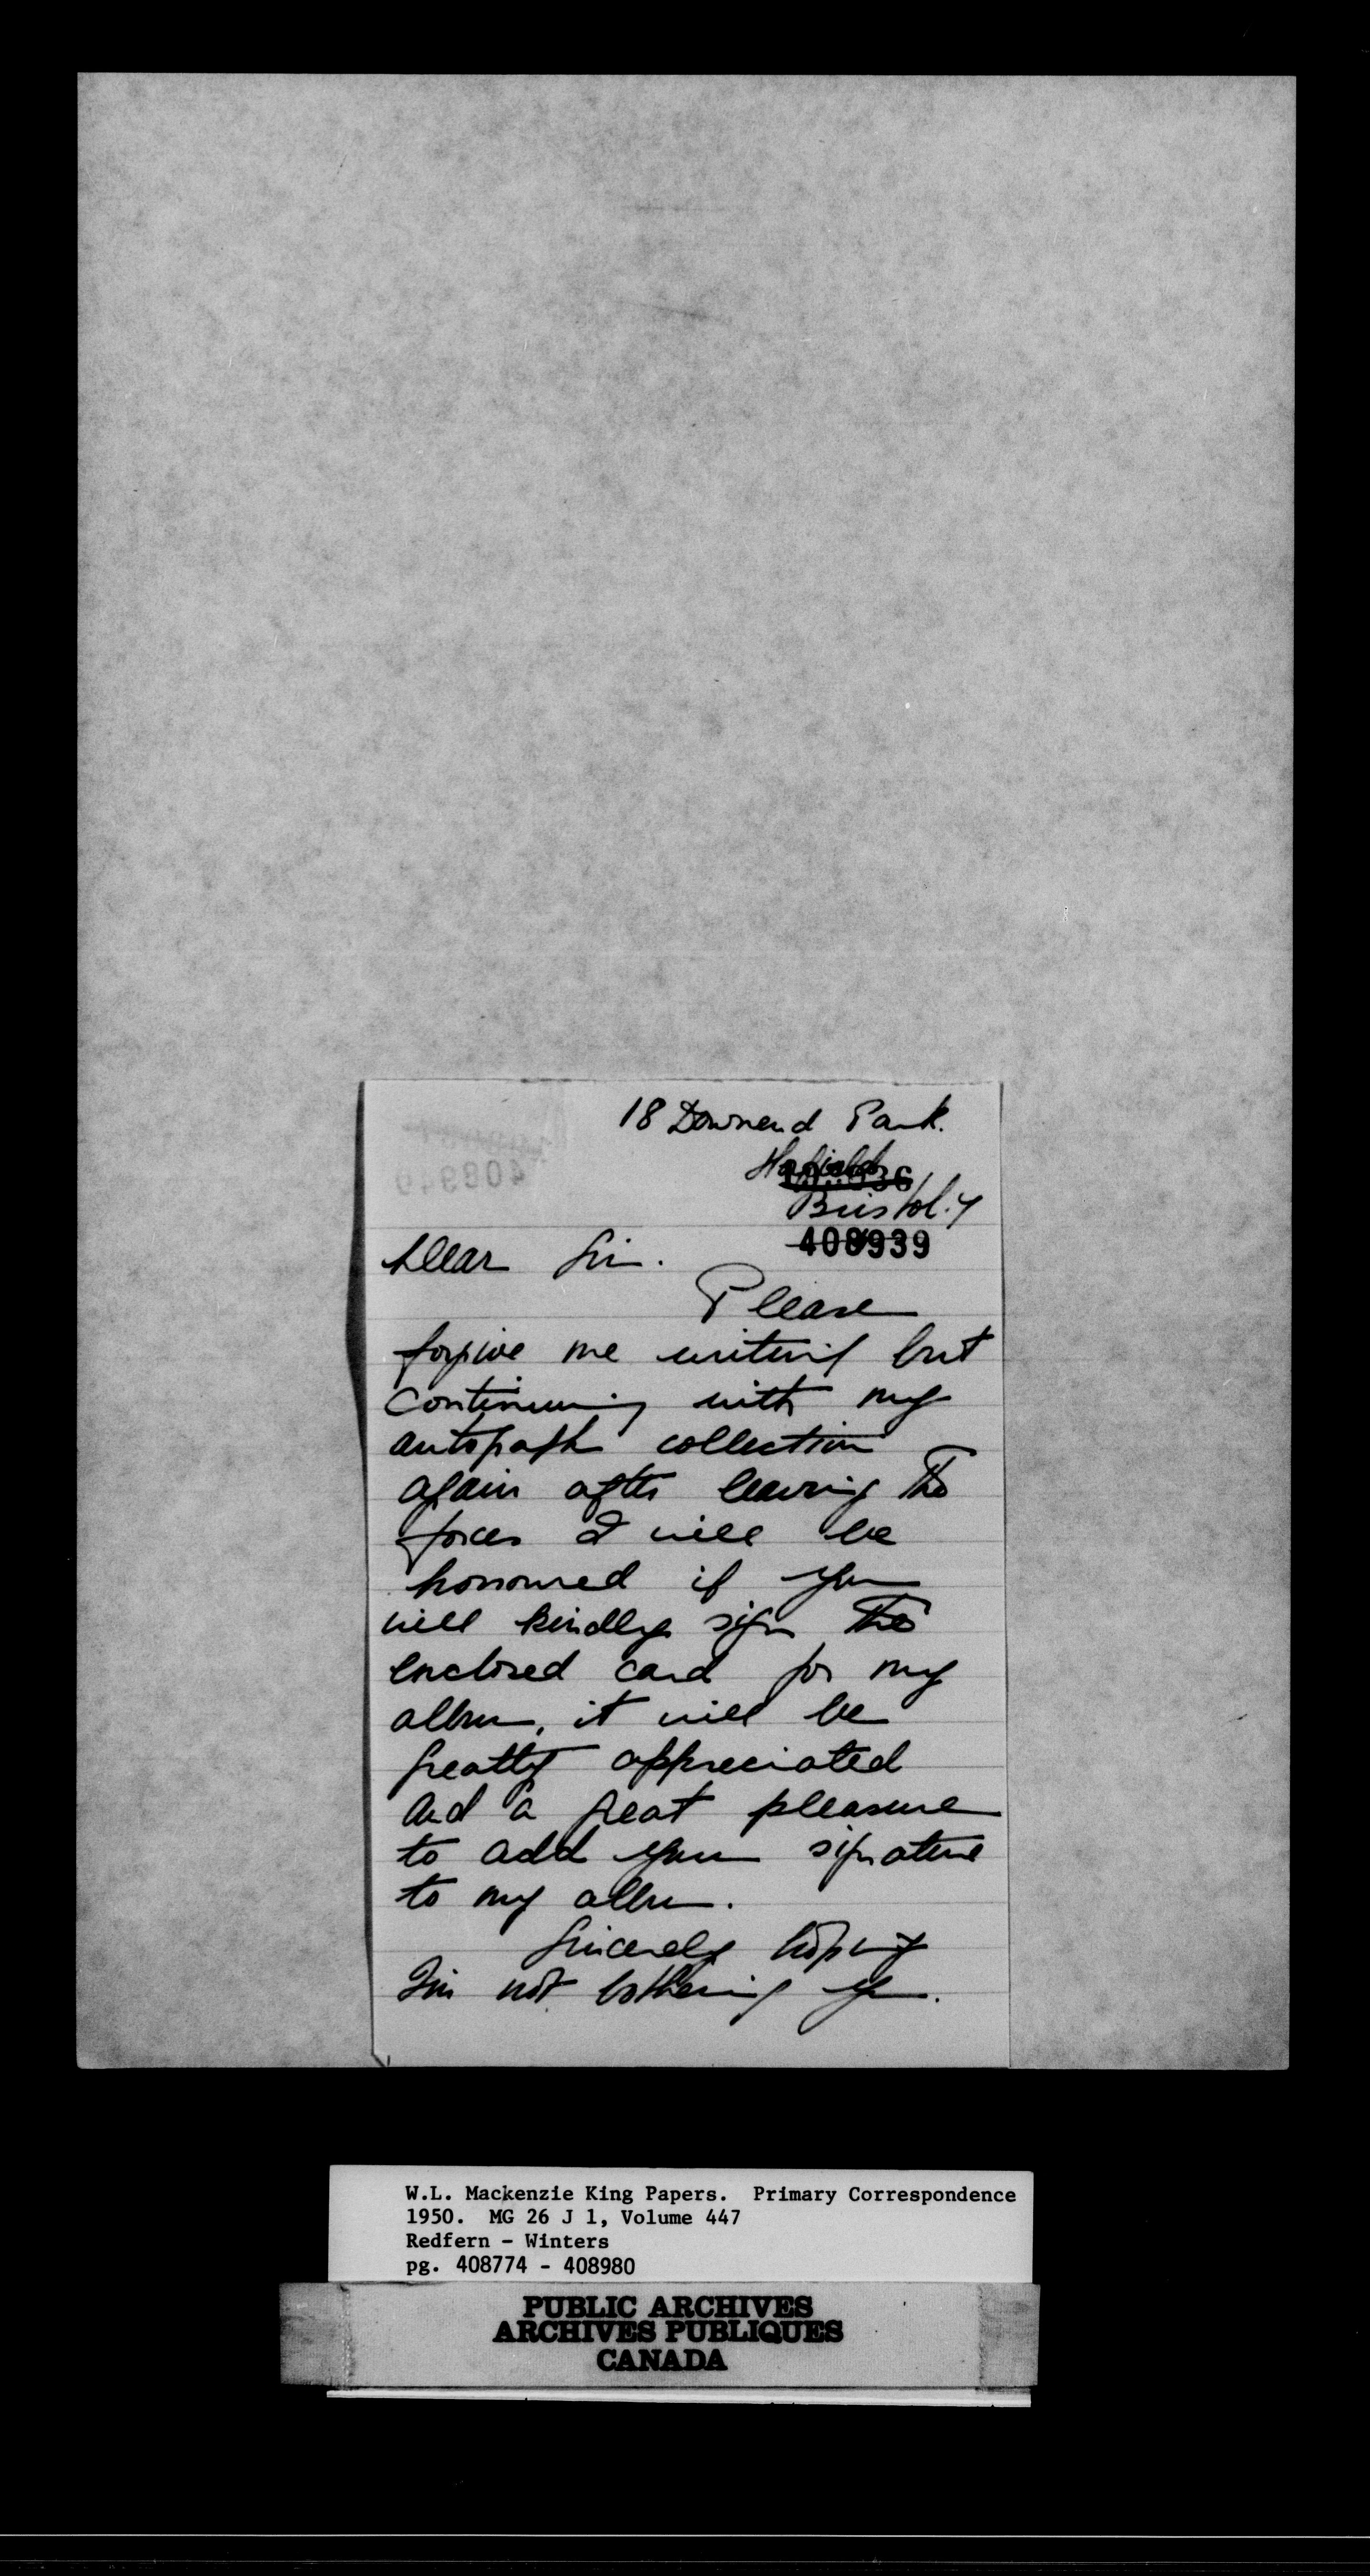 18 Downend Park.
Horfield
Bristol. 7
408939
Dear Sir.
Please
forgive me writing but
continuing with my
autograph collection
again after leaving the
forces I will be
honoured if you
will kindly sign the
enclosed card for my
album, it will be
greatly appreciated
and a great pleasure
to add your signature
to my album.
Sincerely hoping
I'm not bothering you.
W.L. Mackenzie King Papers. Primary Correspondence
1950. MG 26 J 1, Volume 447
Redfern - Winters
pg. 408774 - 408980
PUBLIC ARCHIVES
ARCHIVES PUBLIQUES
CANADA